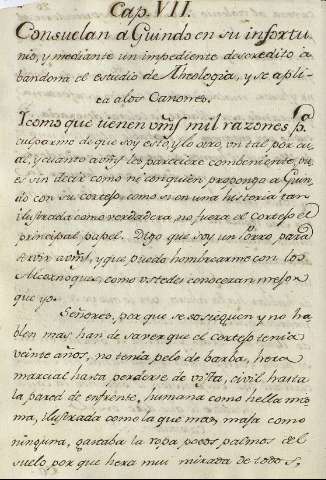 Cap. VII.
Consuelan a Guindo en su infortu
nio, y mediante un impediente descredito a
bandona el estudio de Theologia, y se apli
ca alos Canones.
Y como que tienen vms mil razones pa
culparme de que soy esto, y lo otro, un tal por cu
al, y cuanto avms les pareciere combeniente, pu
es sin decir como ne conquien propongo a Guin
do con su cortejo, como si en una historia tan
ilustrada como verdadera, no fuera el cortejo el
principal papel. Digo que soy un porro para
servir avms, y que puedo hombrearme con los
Alcornoques, como ustedes conoceran mejor
que yo.
Señores, por que se sosieguen y no ha
blen mas han de saver que el cortejo tenia
veinte años, no tenia pelo de barba, hera
marcial hasta perderse de vista, civil hasta
la pared de enfrente, humana como hella mis
ma, ilustrada como la que mas, maja como
ninguna, gastaba la ropa pocos palmos del
suelo por que hera mui mirada de todos,